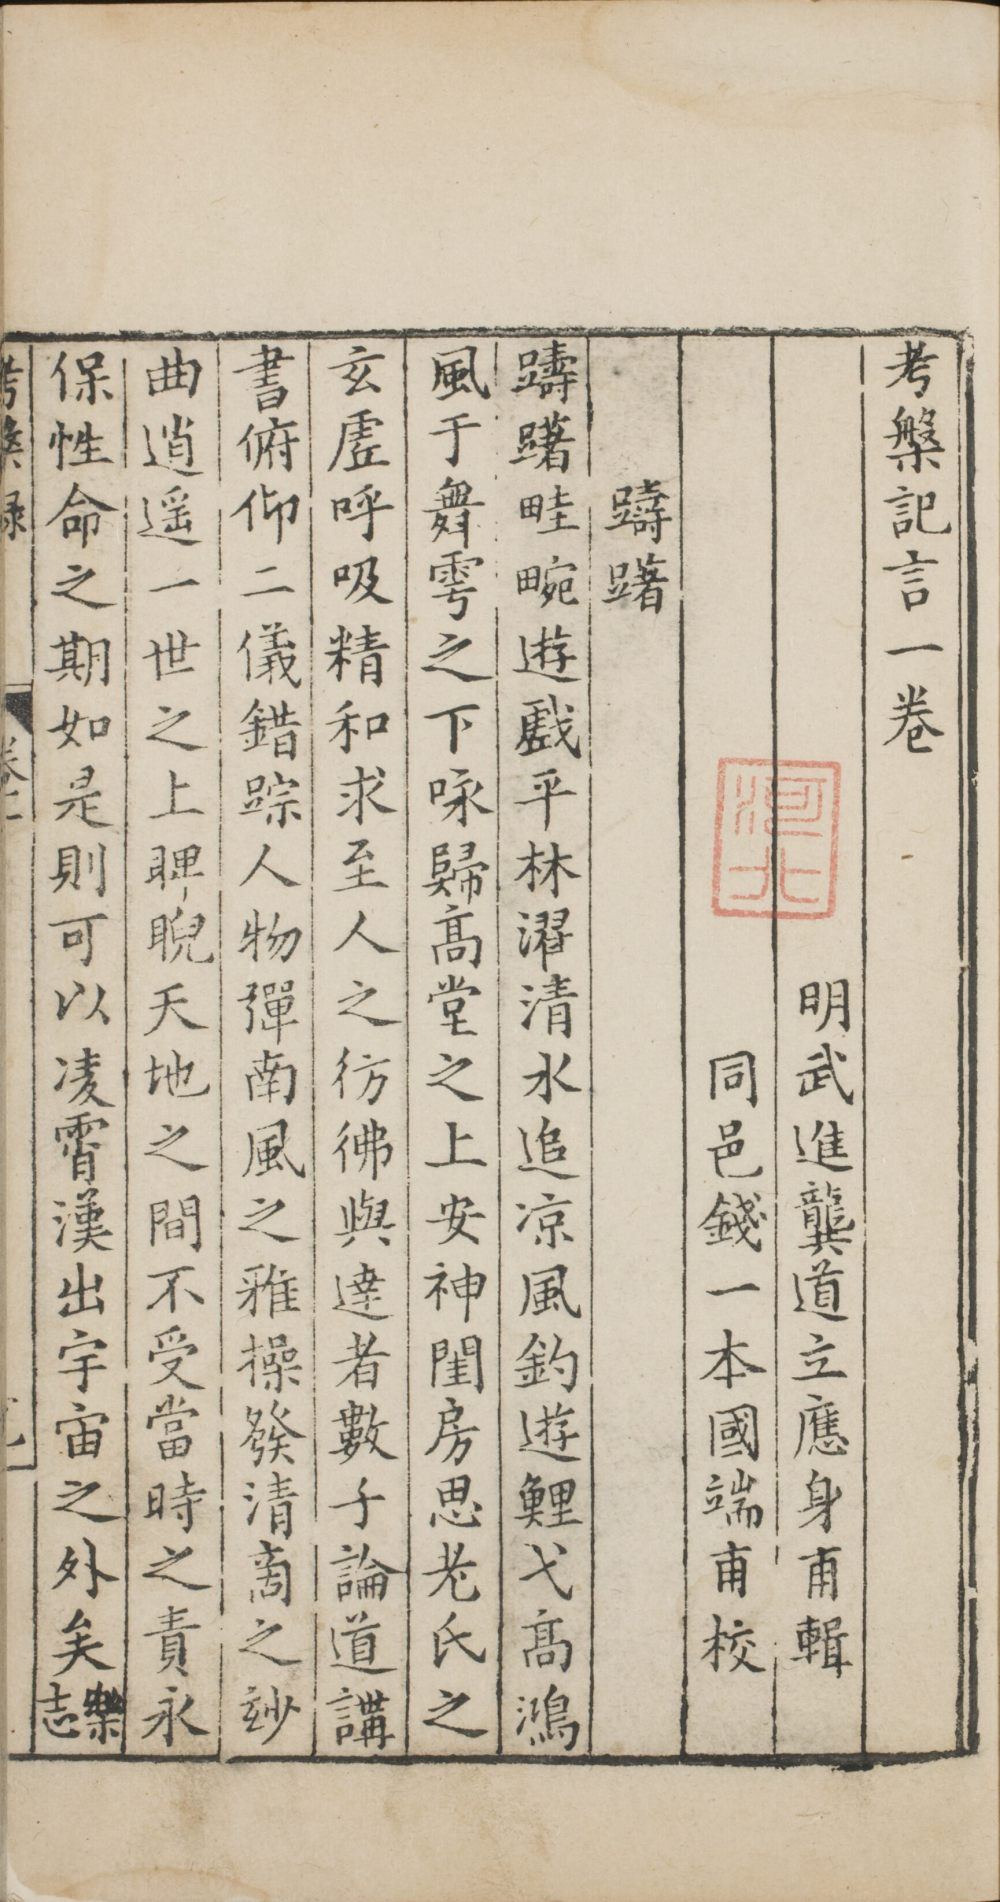 考槃記言一卷
明武進龔道立應身甫輯
同邑錢一本國端甫校
河北
躊躇
躊躇畦畹遊戲平林濯清水追凉風釣遊鯉弋高鴻
風于舞雩之下咏歸高堂之上安神閨房思老氏之
玄虛呼吸精和求至人之彷彿與達者數子論道講
書俯仰二儀錯踪人物彈南風之雅操發清商之玅
曲逍遥一世之上睥睨天地之間不受當時之責永
保性命之期如是則可以凌霄漢出宇宙之外矣樂志